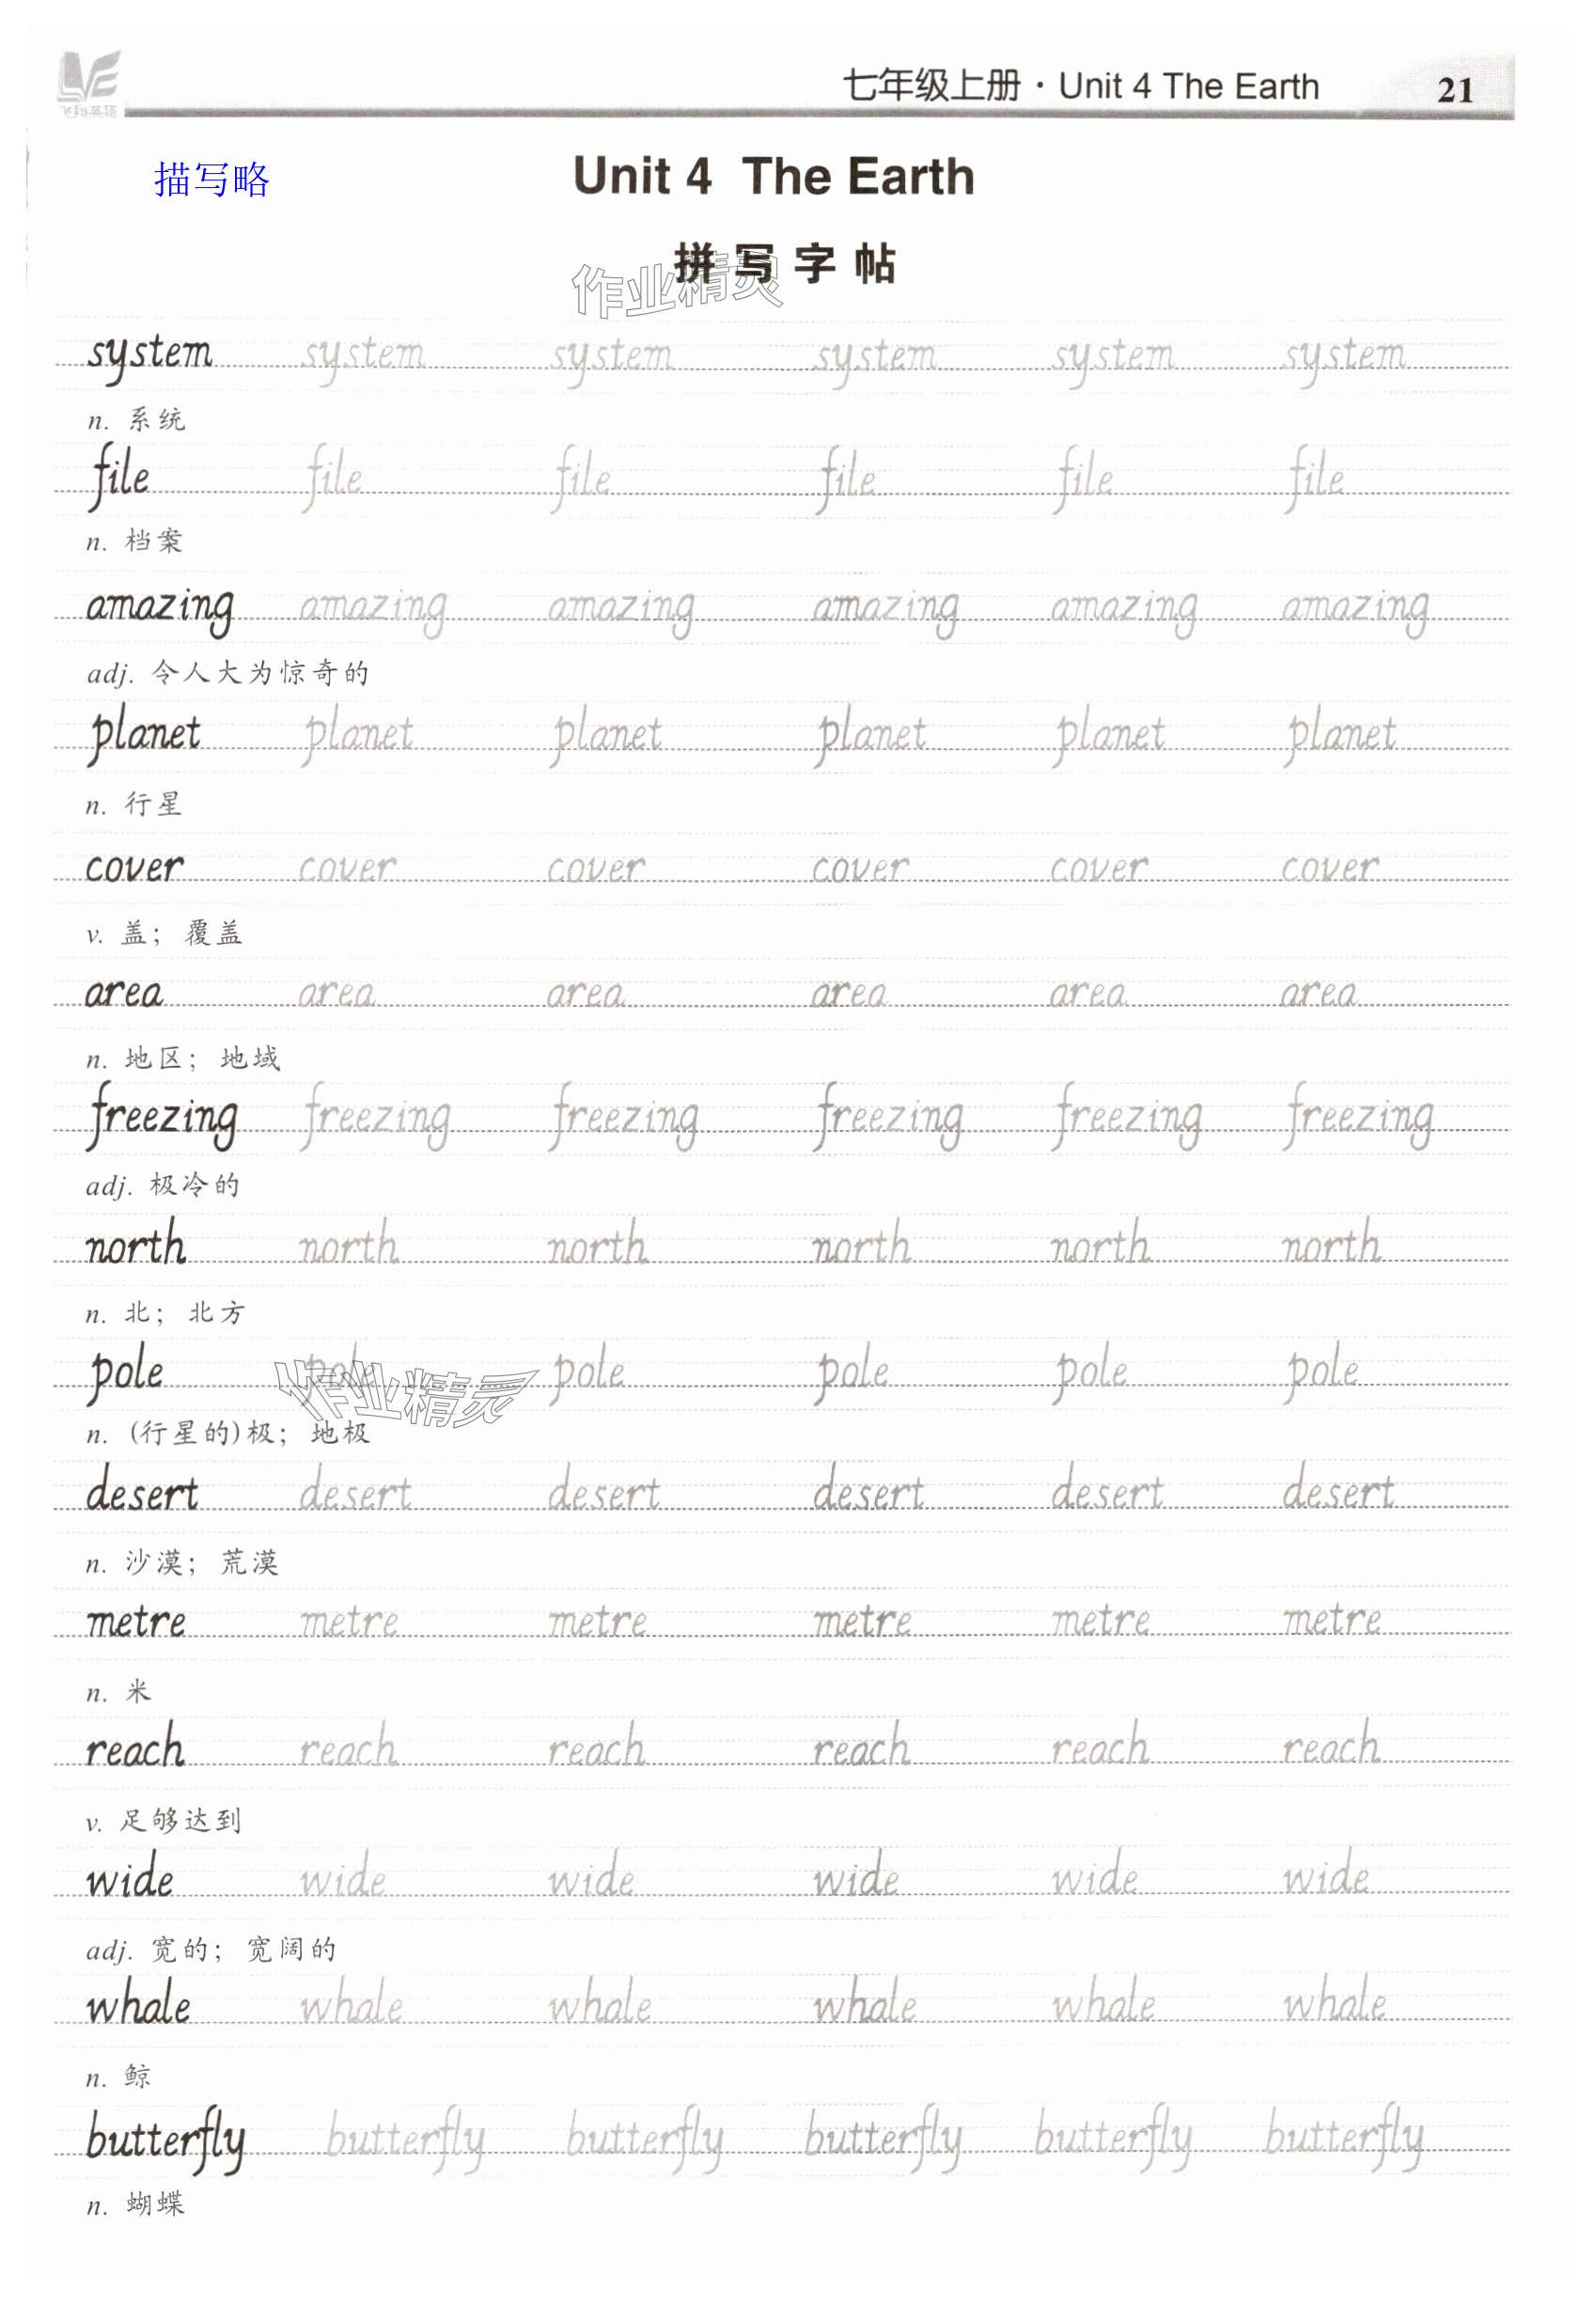 七年级上册·Unit 4 The Earth 21
描写略
Unit 4 The Earth
拼写字帖
作业精灵
system system system system system system
n. 系统
file file file file file file
n. 档案
amazing amazing amazing amazing amazing amazing
adj. 令人大为惊奇的
planet planet planet planet planet planet
n. 行星
cover cover cover cover cover cover
v. 盖；覆盖
area area area area area area
n. 地区；地域
freezing freezing freezing freezing freezing freezing
adj. 极冷的
north north north north north north
n. 北；北方
pole pole pole pole pole pole
作业精灵
n. (行星的)极；地极
desert desert desert desert desert desert
n. 沙漠；荒漠
metre metre metre metre metre metre
n. 米
reach reach reach reach reach reach
v. 足够达到
wide wide wide wide wide wide
adj. 宽的；宽阔的
whale whale whale whale whale whale
n. 鲸
butterfly butterfly butterfly butterfly butterfly butterfly
n. 蝴蝶